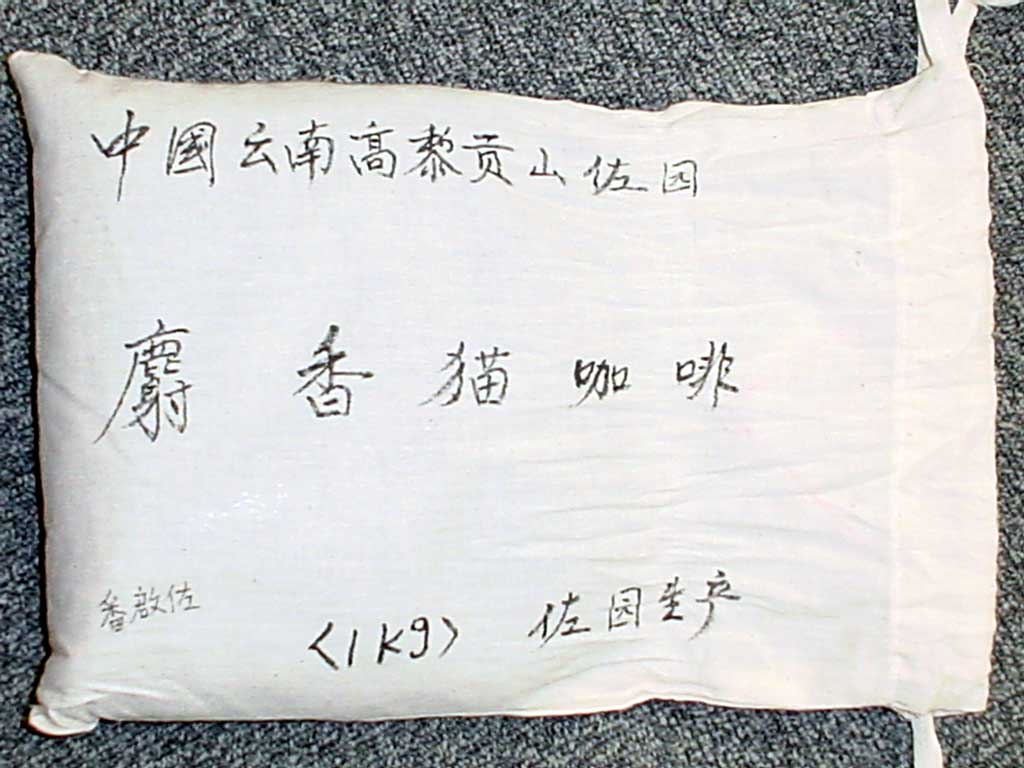 中國云南高黎贡山佐园
麝香猫咖啡
番啟佐
<1kg> 佐园生产